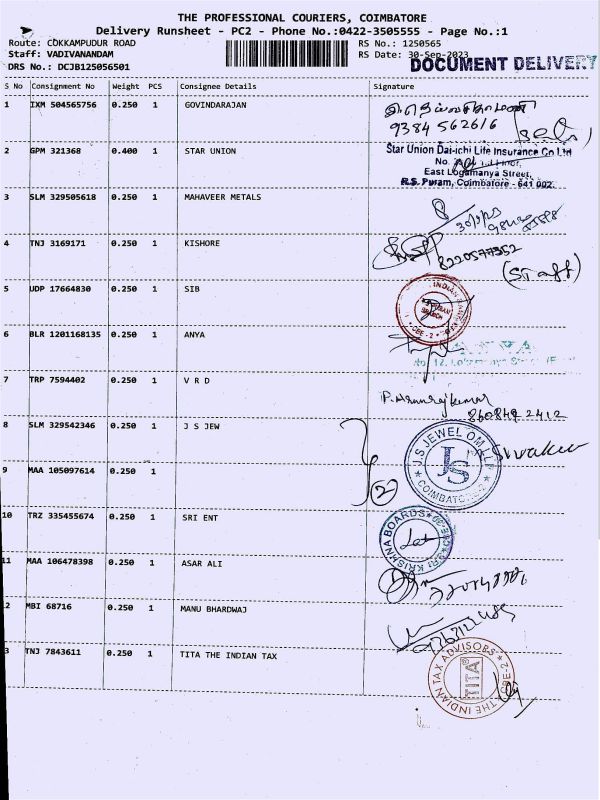 THE PROFESSIONAL COURIERS, COIMBATORE
Delivery Runsheet - PC2 - Phone No.:0422-3505555 - Page No.:1
Route: COKKAMPUDUR ROAD
RS No.: 1250565
Staff: VADIVANANDAM
RS Date: 30-Sep-2023
DRS No.: DCJB125056501
DOCUMENT DELIVERY
S No Consignment No Weight PCS Consignee Details Signature
1 IXM 504565756 0.250 1 GOVINDARAJAN
9384 562616
2 GPM 321368 0.400 1 STAR UNION
Star Union Dai-ichi Life Insurance Co Ltd
East Logamanya Street,
R.S. Puram, Coimbatore - 641 002.
3 SLM 329505618 0.250 1 MAHAVEER METALS
4 TNJ 3169171 0.250 1 KISHORE
8220577352
(Staff)
5 UDP 17664830 0.250 1 SIB
INDIAN BANK
CBE-2
6 BLR 1201168135 0.250 1 ANYA
7 TRP 7594402 0.250 1 V R D
P. Arunrajkumar
860849 2412
8 SLM 329542346 0.250 1 J S JEW
J.S JEWEL OM LLP
JS
COIMBATORE-2
Sivakumar
9 MAA 105097614 0.250 1
2
10 TRZ 335455674 0.250 1 SRI ENT
SRI KRISHNA BOARDS
11 MAA 106478398 0.250 1 ASAR ALI
2 MBI 68716 0.250 1 MANU BHARDWAJ
3 TNJ 7843611 0.250 1 TITA THE INDIAN TAX
THE INDIAN TAX ADVISORS
TITA
CBE-2